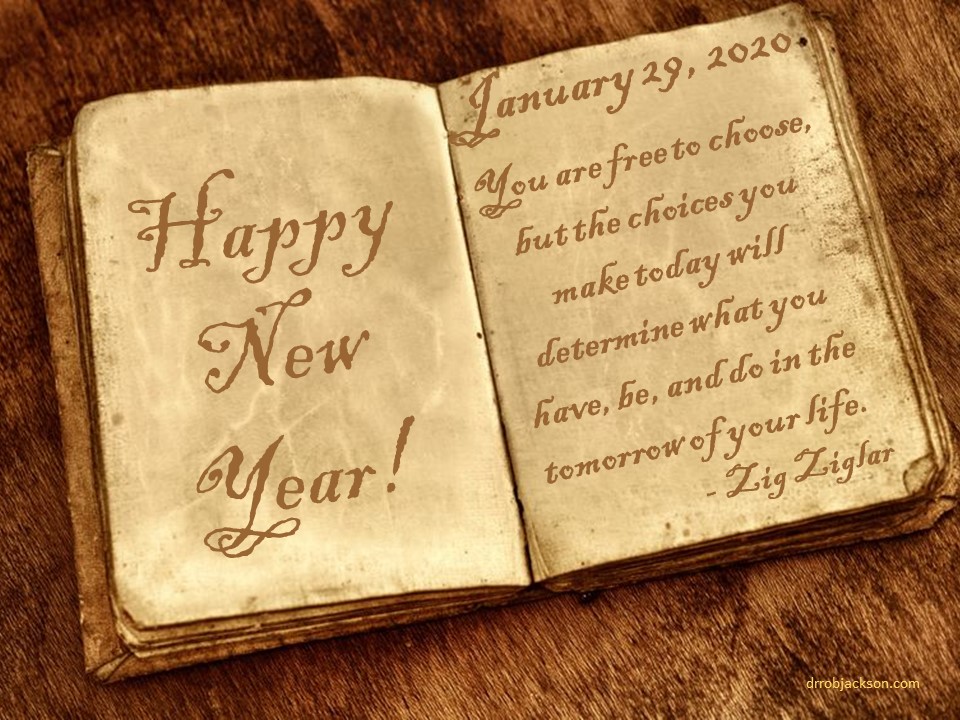 Happy
New
Year!
January 29, 2020
You are free to choose,
but the choices you
make today will
determine what you
have, be, and do in the
tomorrow of your life.
- Zig Ziglar
drrobjackson.com